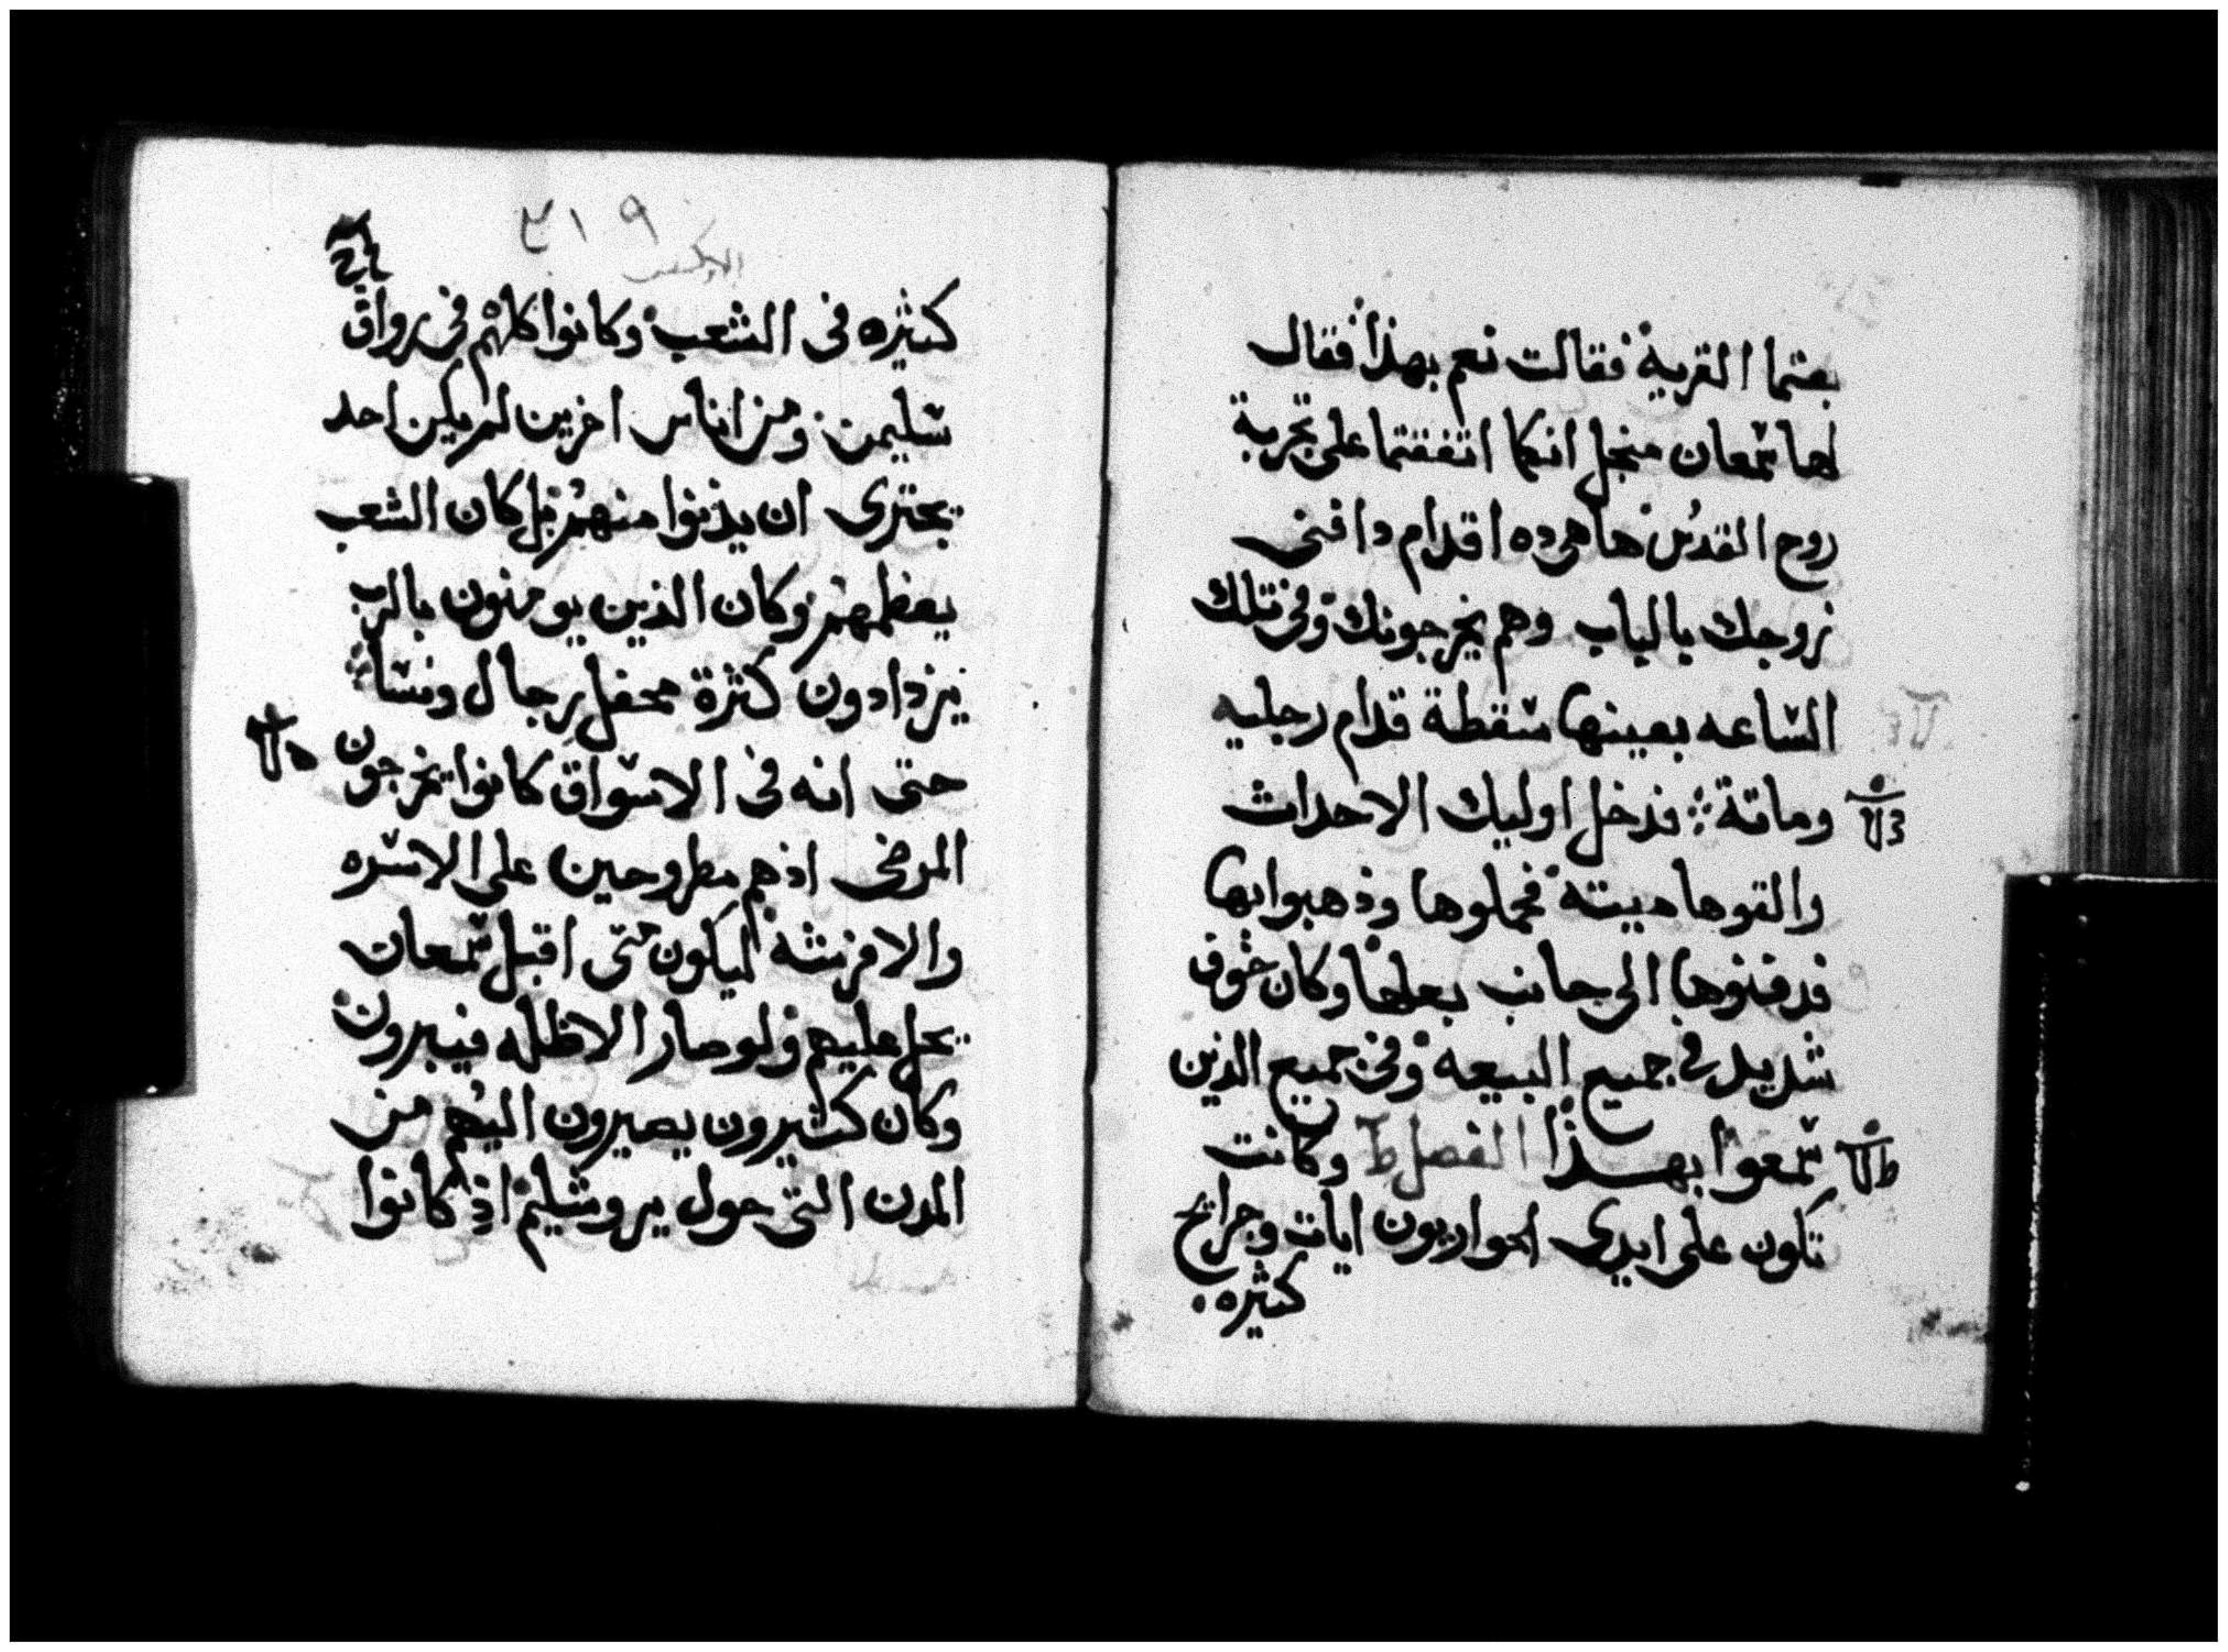 بعتما القرية فقالت نعم بهذا فقال
لها سمعان منجل انكما اتفقتما على تجربة
روح القدس ها هى ده اقدام دافنى
زوجك بالباب وهم يخرجونك وفى تلك
الساعه بعينها سقطة قدام رجليه
وماتة فدخل اوليك الاحداث
والقوها ميته فحملوها وذهبوا بها
فدفنوها الى جانب بعلها وكان خوف
شديد فى جميع البيعه وفى جميع الذين
سمعوا بهذا الفصل ط وكانت
تكون على ايدى الحواريون ايات وجرايح
كثيره
٣١٩
كثيره فى الشعب وكانوا كلهم فى رواق
سليمن ومن اناس اخرين لم يكن احد
يجترى ان يدنوا منهم بل كان الشعب
يعظمهم وكان الذين يومنون بالرب
يزدادون كثرة محفل رجال ونسا
حتى انه فى الاسواق كانوا يخرجون
المرضى اذهم مطروحين على الاسره
والافرشه ليكون متى اقبل سمعان
يحل عليهم ولو صار الاظله فيبرون
وكان كثيرون يصيرون اليهم من
المدن التى حول يروشليم اذ كانوا